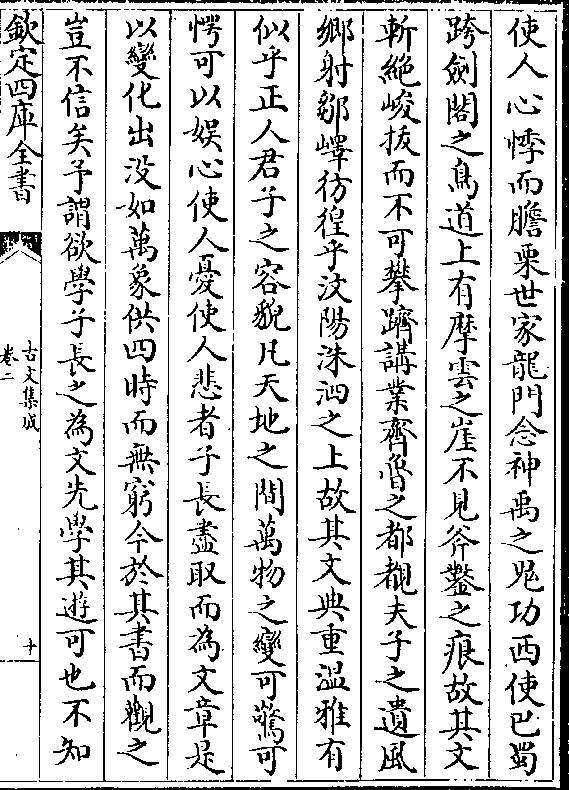 使人心悸而膽栗世家龍門念神禹之鬼功西使巴蜀
跨劍閣之鳥道上有摩雲之崖不見斧鑿之痕故其文
斬絶峻拔而不可攀躋講業齊魯之都覩夫子之遺風
鄉射鄒嶧彷徨乎汶陽洙泗之上故其文典重溫雅有
似乎正人君子之容貌凡天地之間萬物之變可驚可
愕可以娛心使人憂使人悲者子長盡取而為文章是
以變化出没如萬象供四時而無窮今於其書而觀之
豈不信矣予謂欲學子長之為文先學其遊可也不知
欽定四庫全書
古文集成
卷二
十